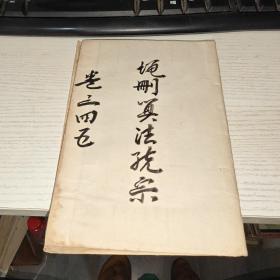 增刪算法統宗
卷三四五